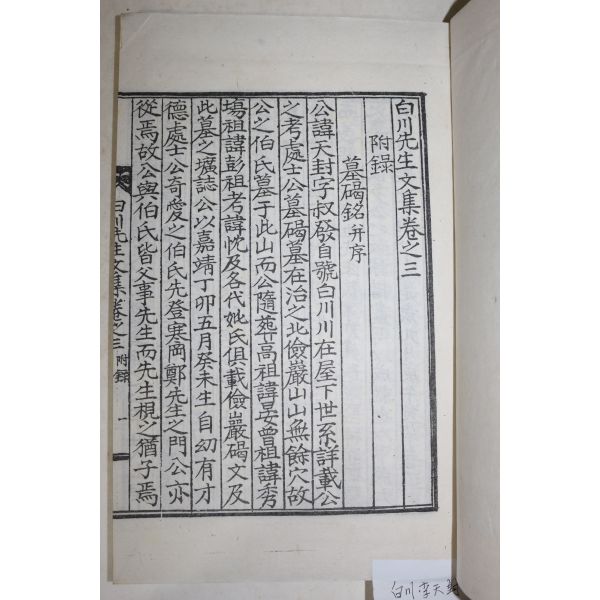 白川先生文集卷之三
附錄
墓碣銘 幷序
公諱天封字叔發自號白川川在屋下世系詳載公
之考處士公墓碣墓在治之北儉巖山山無餘穴故
公之伯氏墓于此山而公隨葬高祖諱晏曾祖諱秀
塲祖諱彭祖考諱忱及各代妣氏俱載儉巖碣文及
此墓之壙誌公以嘉靖丁卯五月癸未生自幼有才
德處士公奇愛之伯氏先登寒岡鄭先生之門公亦
從焉故公與伯氏皆父事先生而先生視之猶子焉
白川先生文集卷之三 附錄 一
白川 李天封